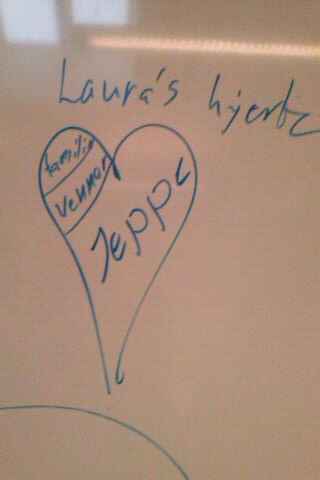 Laura's hjerte
familie
venner
Jeppe